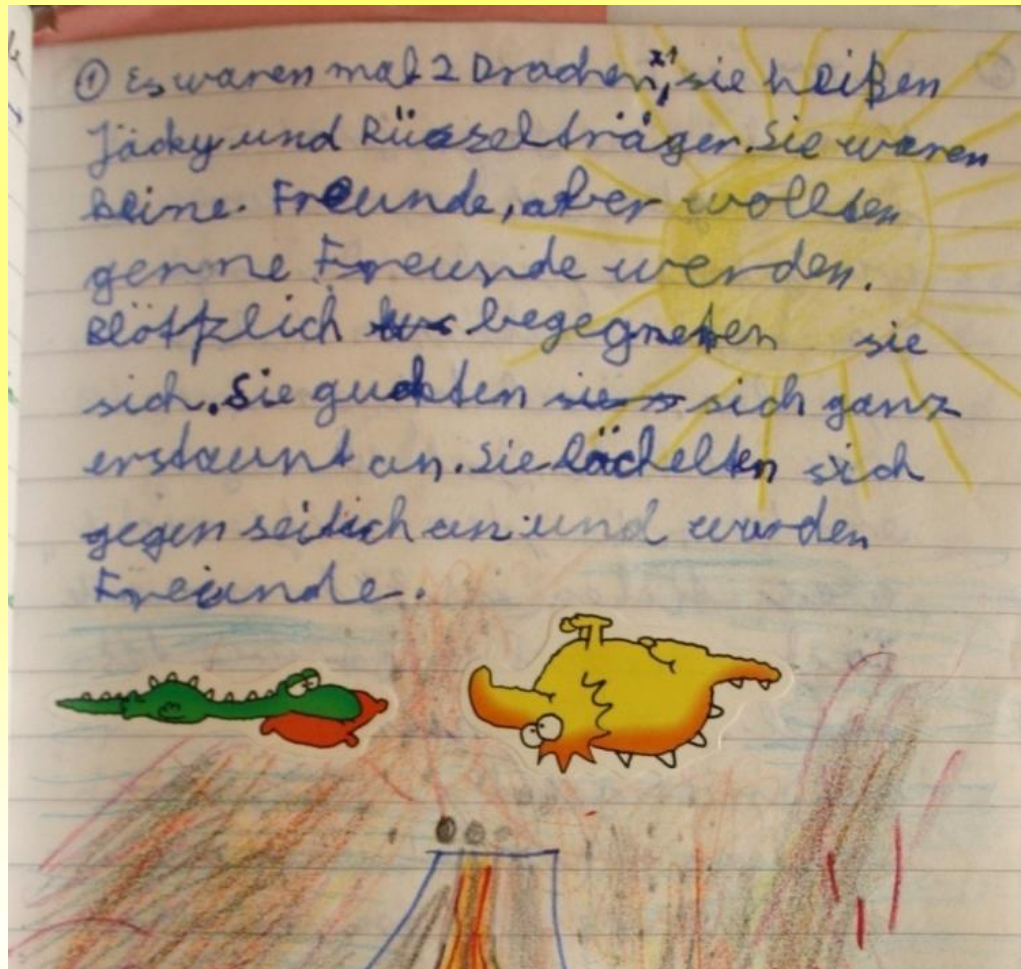 ① Es waren mal 2 Drachen, sie heißen
Jäcky und Rüsselträger. Sie waren
keine Freunde, aber wollten
gerne Freunde werden.
Plötzlich begegneten sie
sich. Sie guckten sich ganz
erstaunt an. Sie lächelten sich
gegenseitich an und wurden
Freunde.